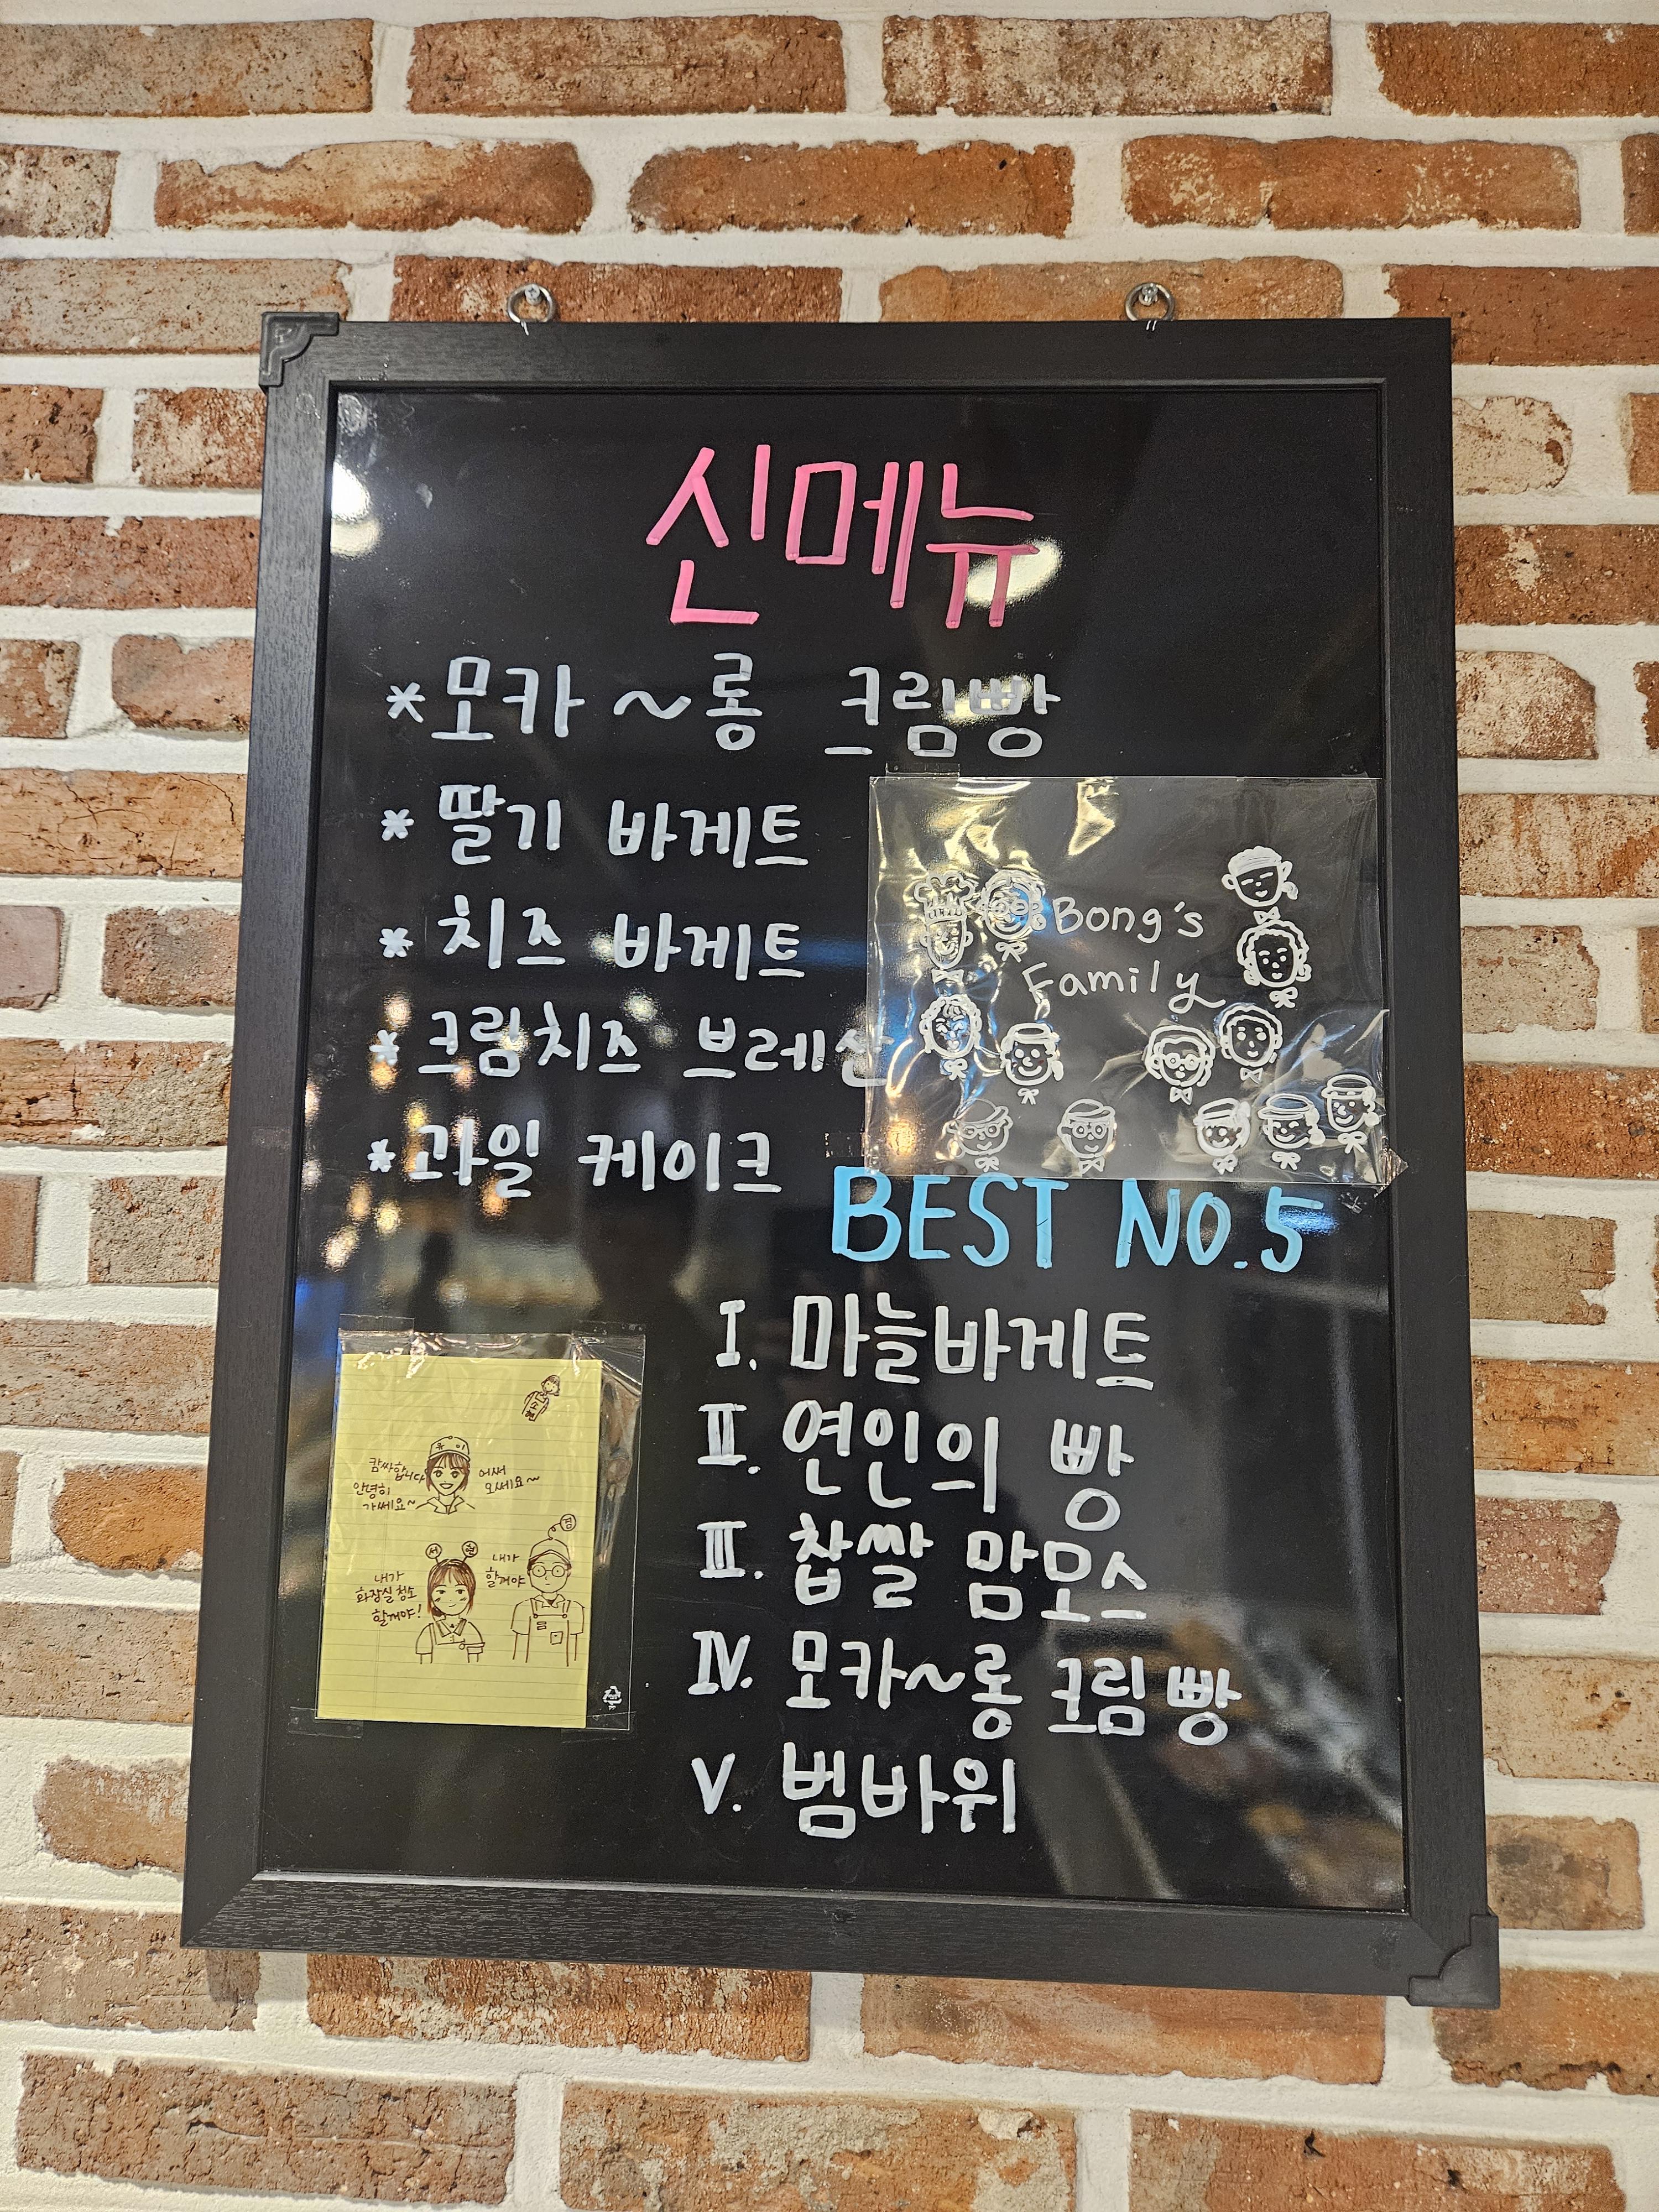 신메뉴
*모카~롱 크림빵
* 딸기 바게트
* 치즈 바게트
* 크림치즈 브레산
* 과일 케이크
Bong's
Family
BEST NO.5
I. 마늘바게트
II. 연인의 빵
III. 찹쌀 맘모스
IV. 모카~롱 크림빵
V. 범바위
유이
캄싸합니다
안녕히
가쎄요~
어써
오쎄요~
서현
내가
화장실 청소
할꺼야!
겸
내가
할꺼야